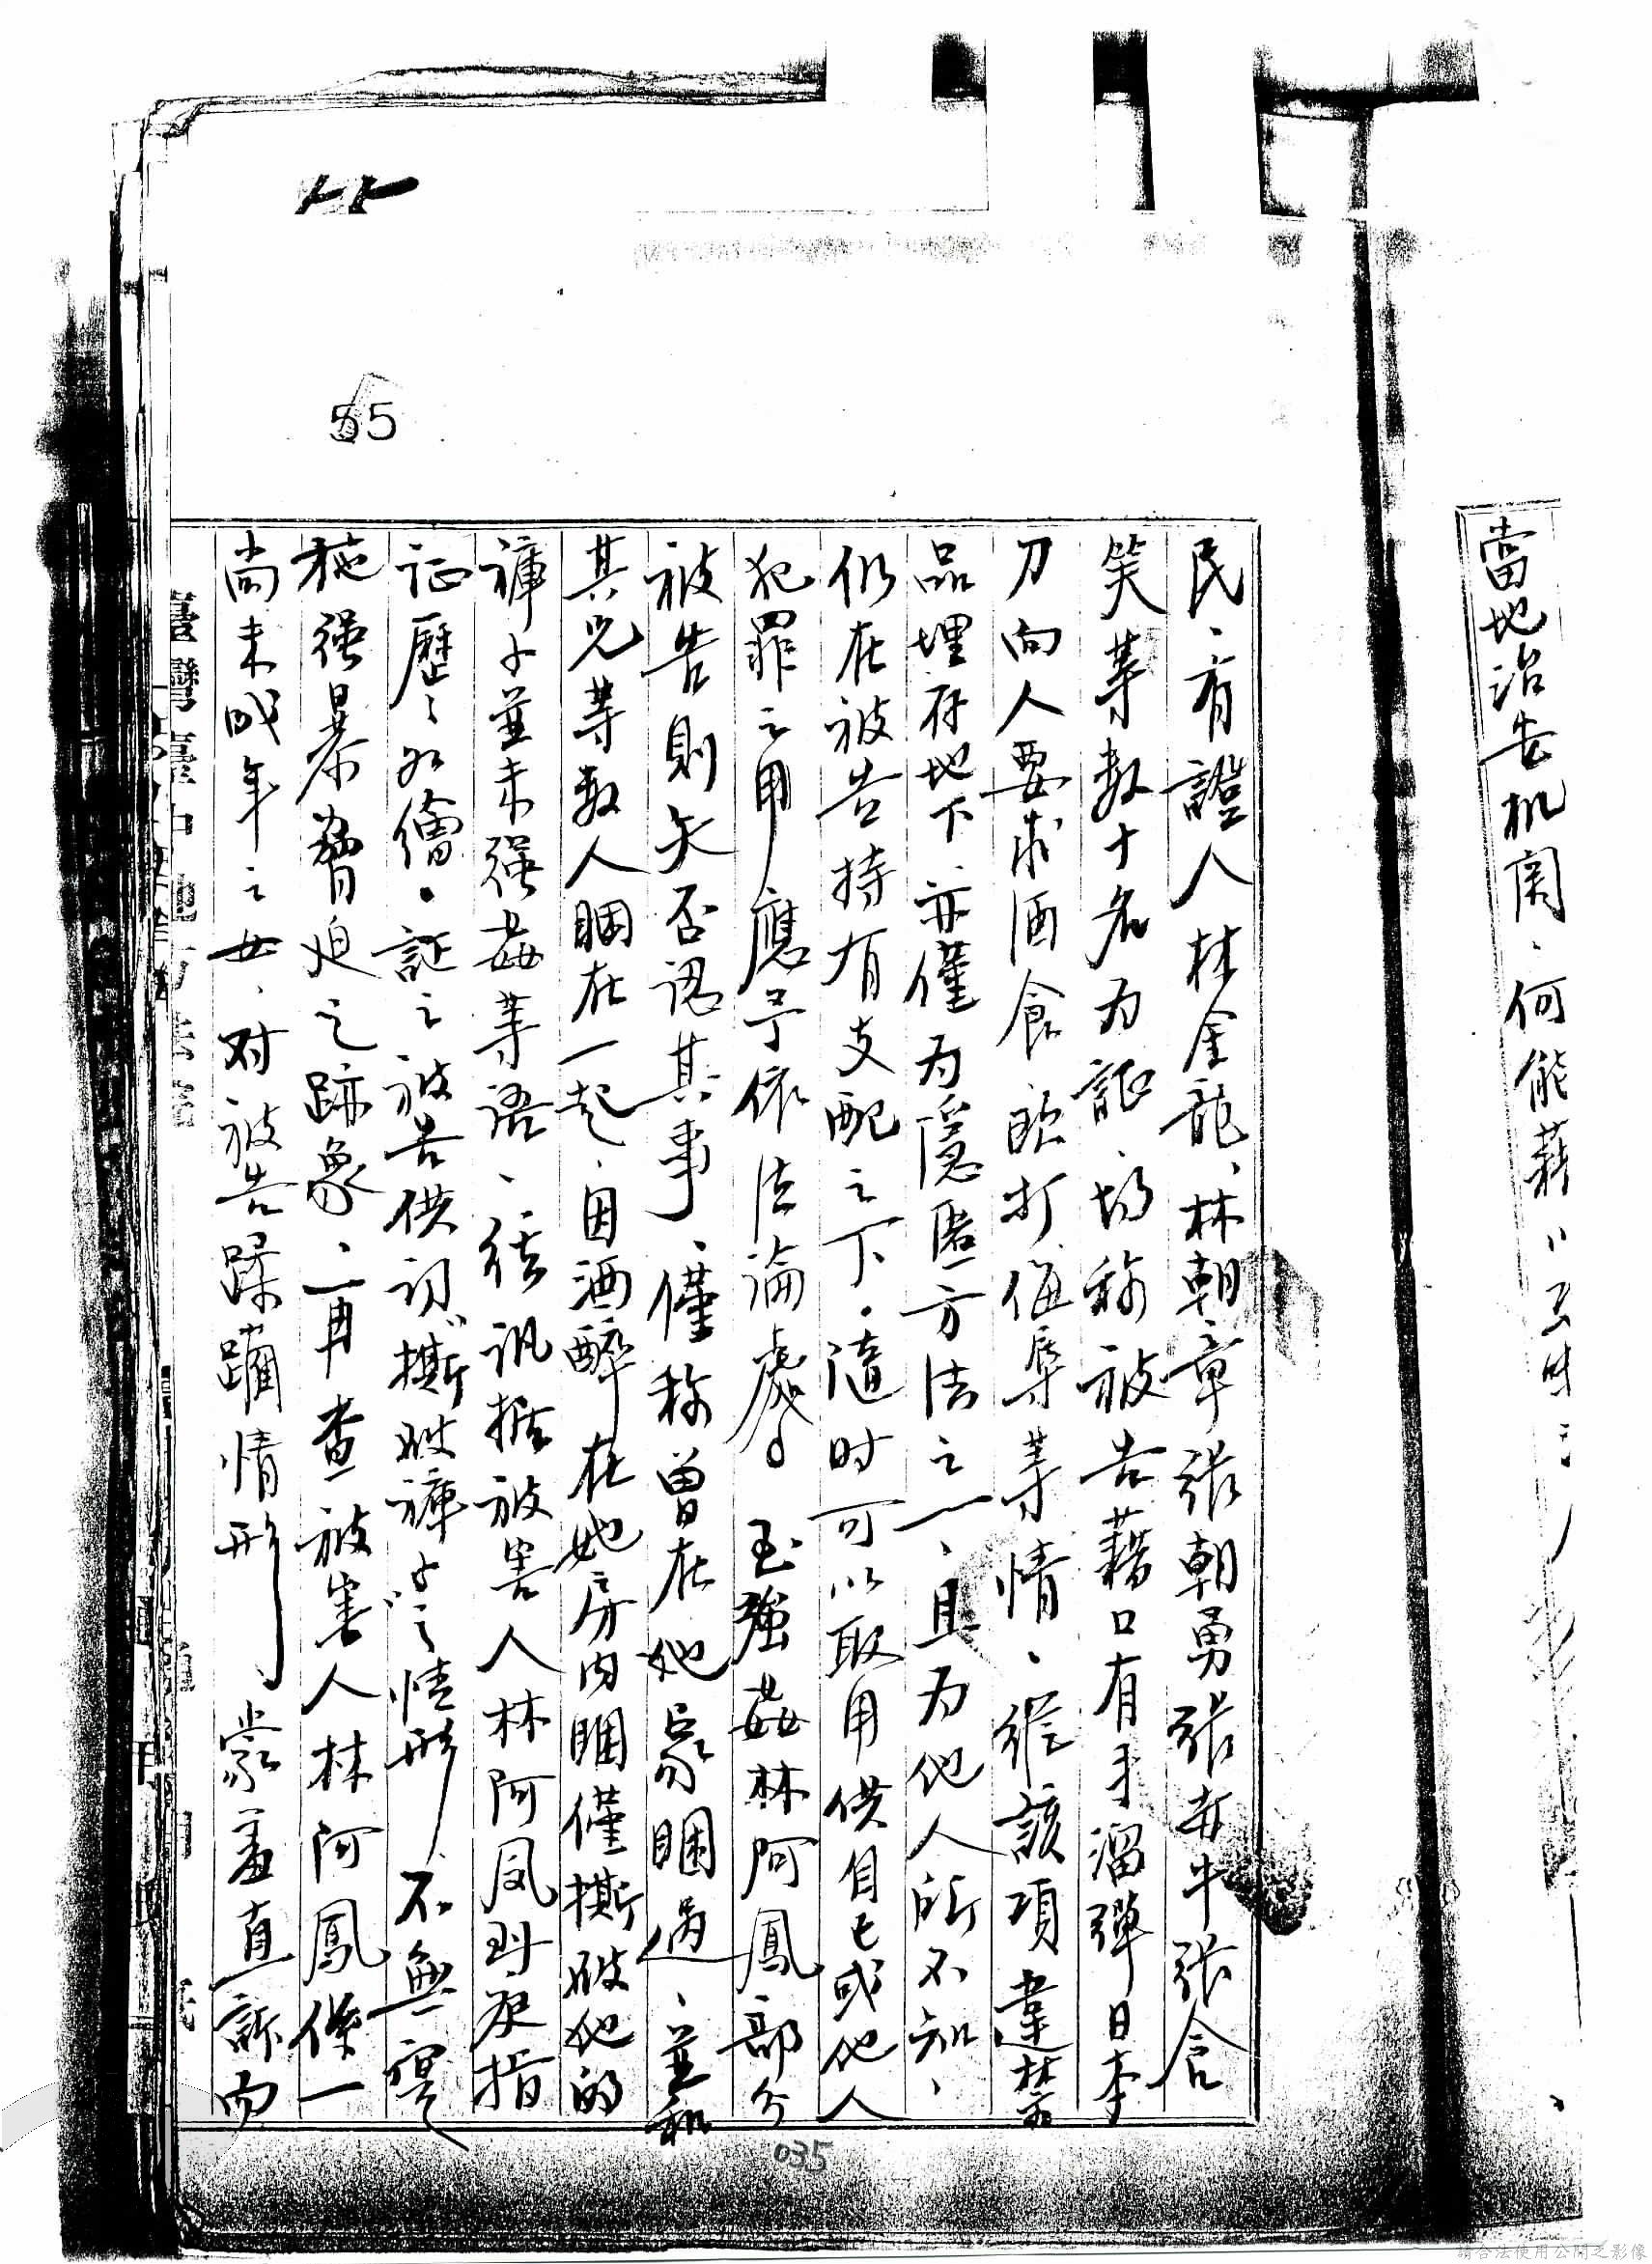 當地治安机関、何能藉
民、有證人林金龍、林朝章張朝勇張赤牛張含
笑等数十名为証、均称被告藉口有手溜彈日本
刀向人要求酒食欧打侮辱等情、縱該項違禁
品埋存地下、亦僅为隱匿方法之一、且为他人所不知、
仍在被告持有支配之下、隨时可以取用供自己或他人
犯罪之用應予依法論處 至強姦林阿鳳部分
被告則矢否認其事、僅称曾在她家睏過、並和
其兄等数人睏在一起、因酒醉在她房内睏僅撕破她的
褲子並未强姦等語、経訊据被害人林阿凤到庭指
证歷〻如繪、証之被告供词〝撕破褲子〞之情形 不無實
施强暴脅迫之跡象、一再查被害人林阿鳳係一
尚未成年之女、对被告蹂躪情形、蒙羞直訴而
臺灣臺中地方法院
55
035
請合法使用公開之影像